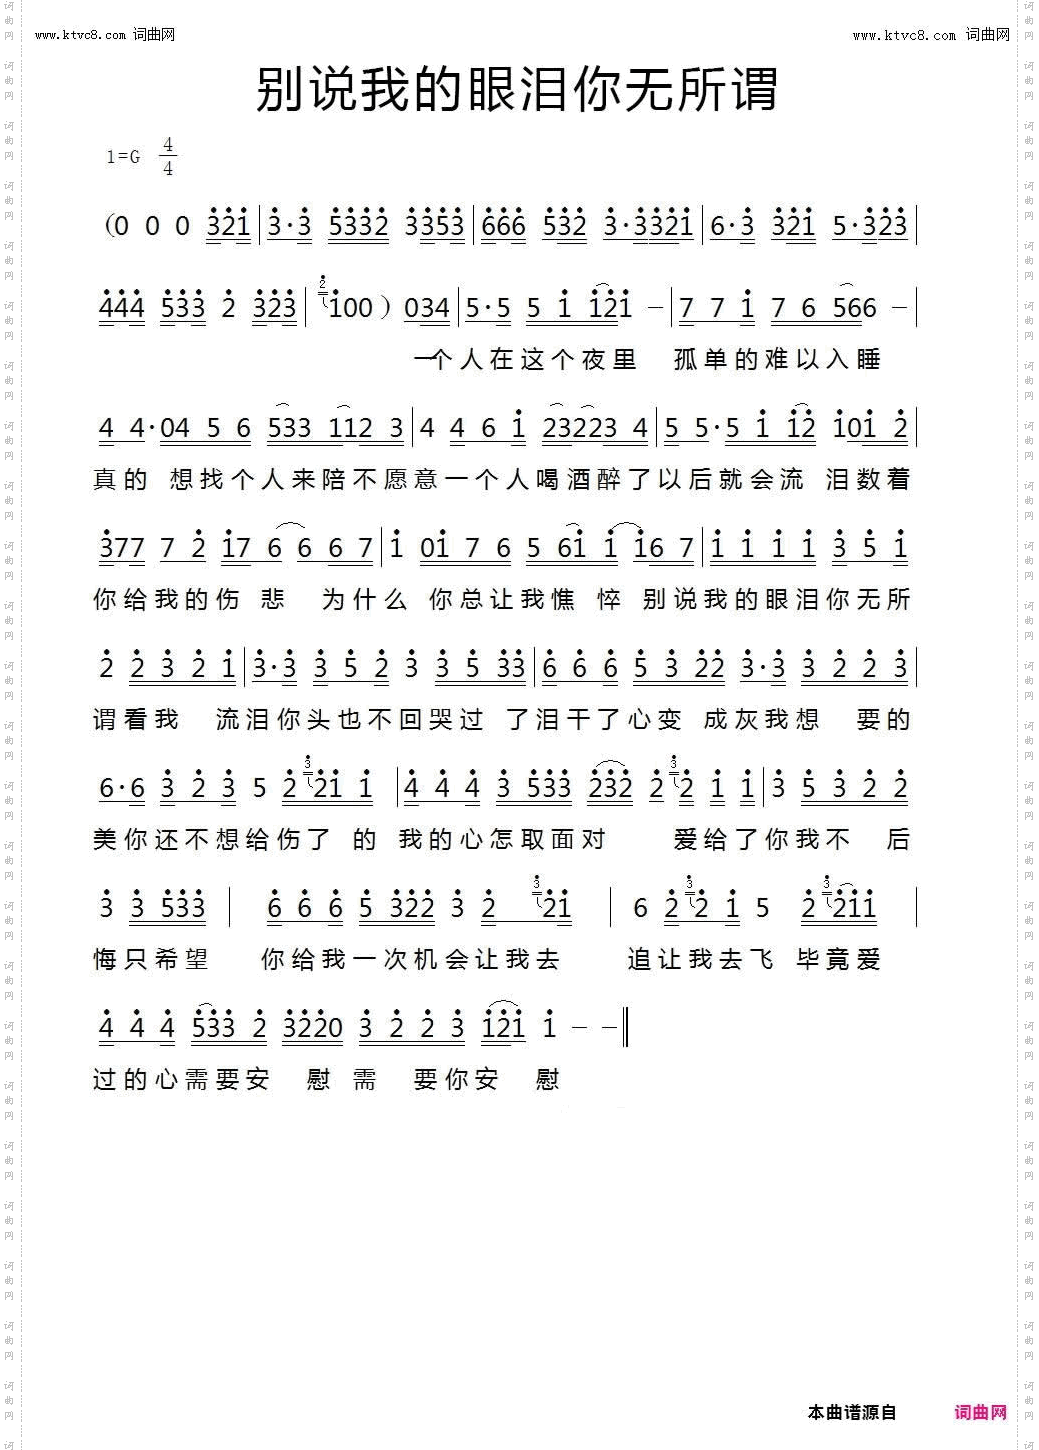 www.ktvc8.com 词曲网 www.ktvc8.com 词曲网
别说我的眼泪你无所谓
1=G 4/4
(0 0 0 321|3·3 5332 3353|666 532 3·3321|6·3 321 5·323|
444 533 2 323|2 100) 034|5·5 5 1 121 –|7 7 1 7 6 566 –|
一个人在这个夜里 孤单的难以入睡
4 4·04 5 6 533 112 3|4 4 6 1 23223 4|5 5·5 1 12 101 2|
真的 想找个人来陪不愿意一个人喝酒醉了以后就会流 泪数着
377 7 2 17 6 6 6 7|1 01 7 6 5 61 1 16 7|1 1 1 1 3 5 1
你给我的伤 悲 为什么 你总让我憔 悴 别说我的眼泪你无所
2 2 3 2 1|3·3 3 5 2 3 3 5 33|6 6 6 5 3 22 3·3 3 2 2 3|
谓看我 流泪你头也不回哭过 了泪干了心变 成灰我想 要的
6·6 3 2 3 5 2 3 21 1 |4 4 4 3 533 232 2 3 2 1 1|3 5 3 2 2
美你还不想给伤了 的 我的心怎取面对 爱给了你我不 后
3 3 533 | 6 6 6 5 322 3 2 3 21 | 6 2 3 2 1 5 2 3 211 |
悔只希望 你给我一次机会让我去 追让我去飞 毕竟爱
4 4 4 533 2 3220 3 2 2 3 121 1 – –‖
过的心需要安 慰 需 要你安 慰
本曲谱源自 词曲网